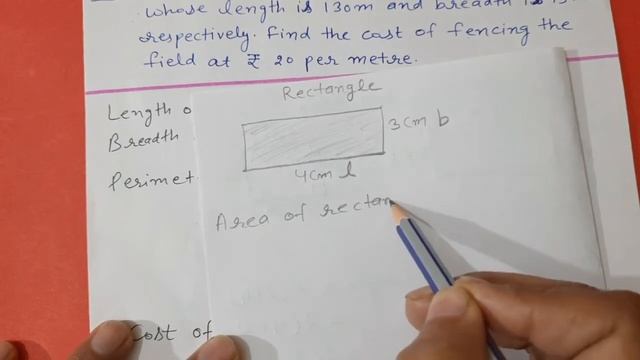 whose length is 130m and breadth is
respectively. Find the cost of fencing the
field at ₹ 20 per metre.
Length o
Breadth
Perimet
Rectangle
3cm b
4cm l
Area of rectan
Cost of